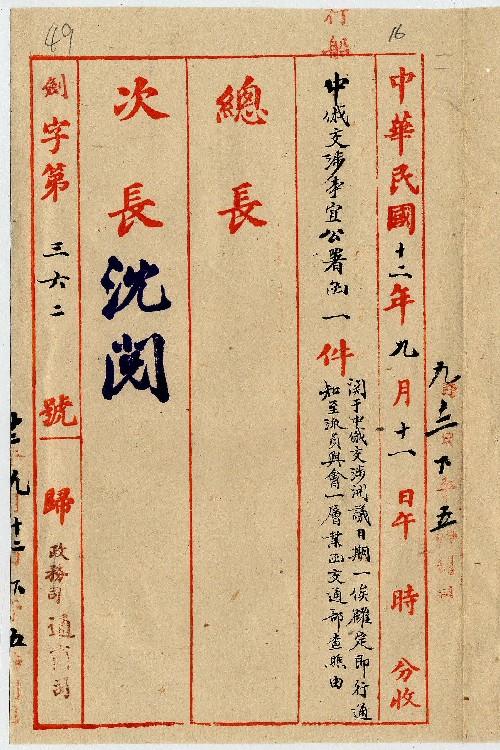 49
16
行船
中華民國十二年九月十一日午 時 分收
中俄交涉事宜公署函一件
関于中俄交涉開議日期一俟確定即行通
知至派員與會一層業函交通部查照由
總長
次長
沈閱
劍字第三六二號
歸
政務司
通商司